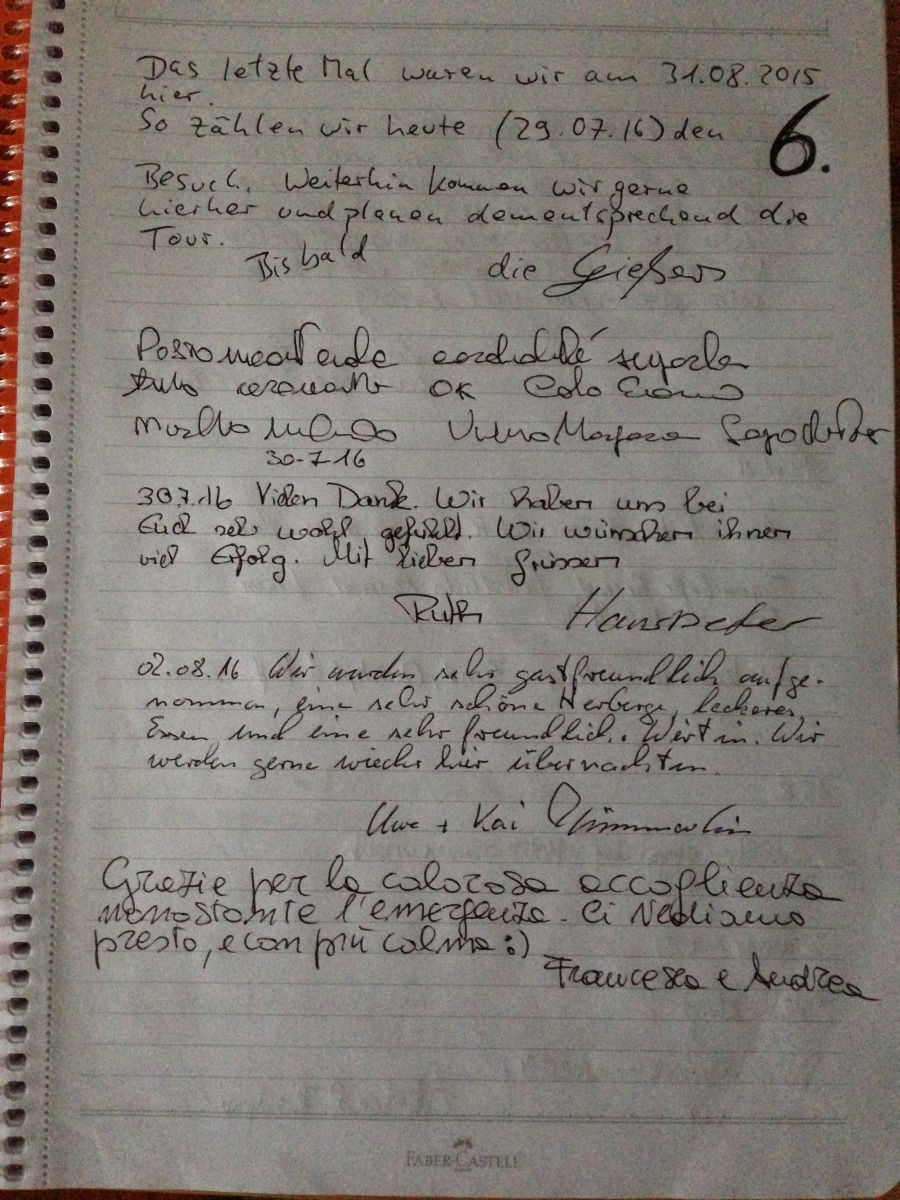 Das letzte Mal waren wir am 31.08.2015
hier.
So zählen wir heute (29.07.16) den 6.
Besuch. Weiterhin kommen wir gerne
hierher und planen dementsprechend die
Tour.
Bis bald die Gießers
OK
30-7-16
30.7.16 Vielen Dank. Wir haben uns bei
Euch sehr wohl gefühlt. Wir wünschen ihnen
viel Erfolg. Mit lieben Grüssen
Ruth Hanspeter
02.08.16 Wir wurden sehr gastfreundlich aufge-
nommen, eine sehr schöne Herberge, leckeres
Essen und eine sehr freundlich. Wirtin. Wir
werden gerne wieder hier übernachten.
Uwe + Kai
Grazie per la calorosa accoglienza
nonostante l'emergenza. Ci vediamo
presto, e con più calma :)
Francesca e Andrea
FABER-CASTELL